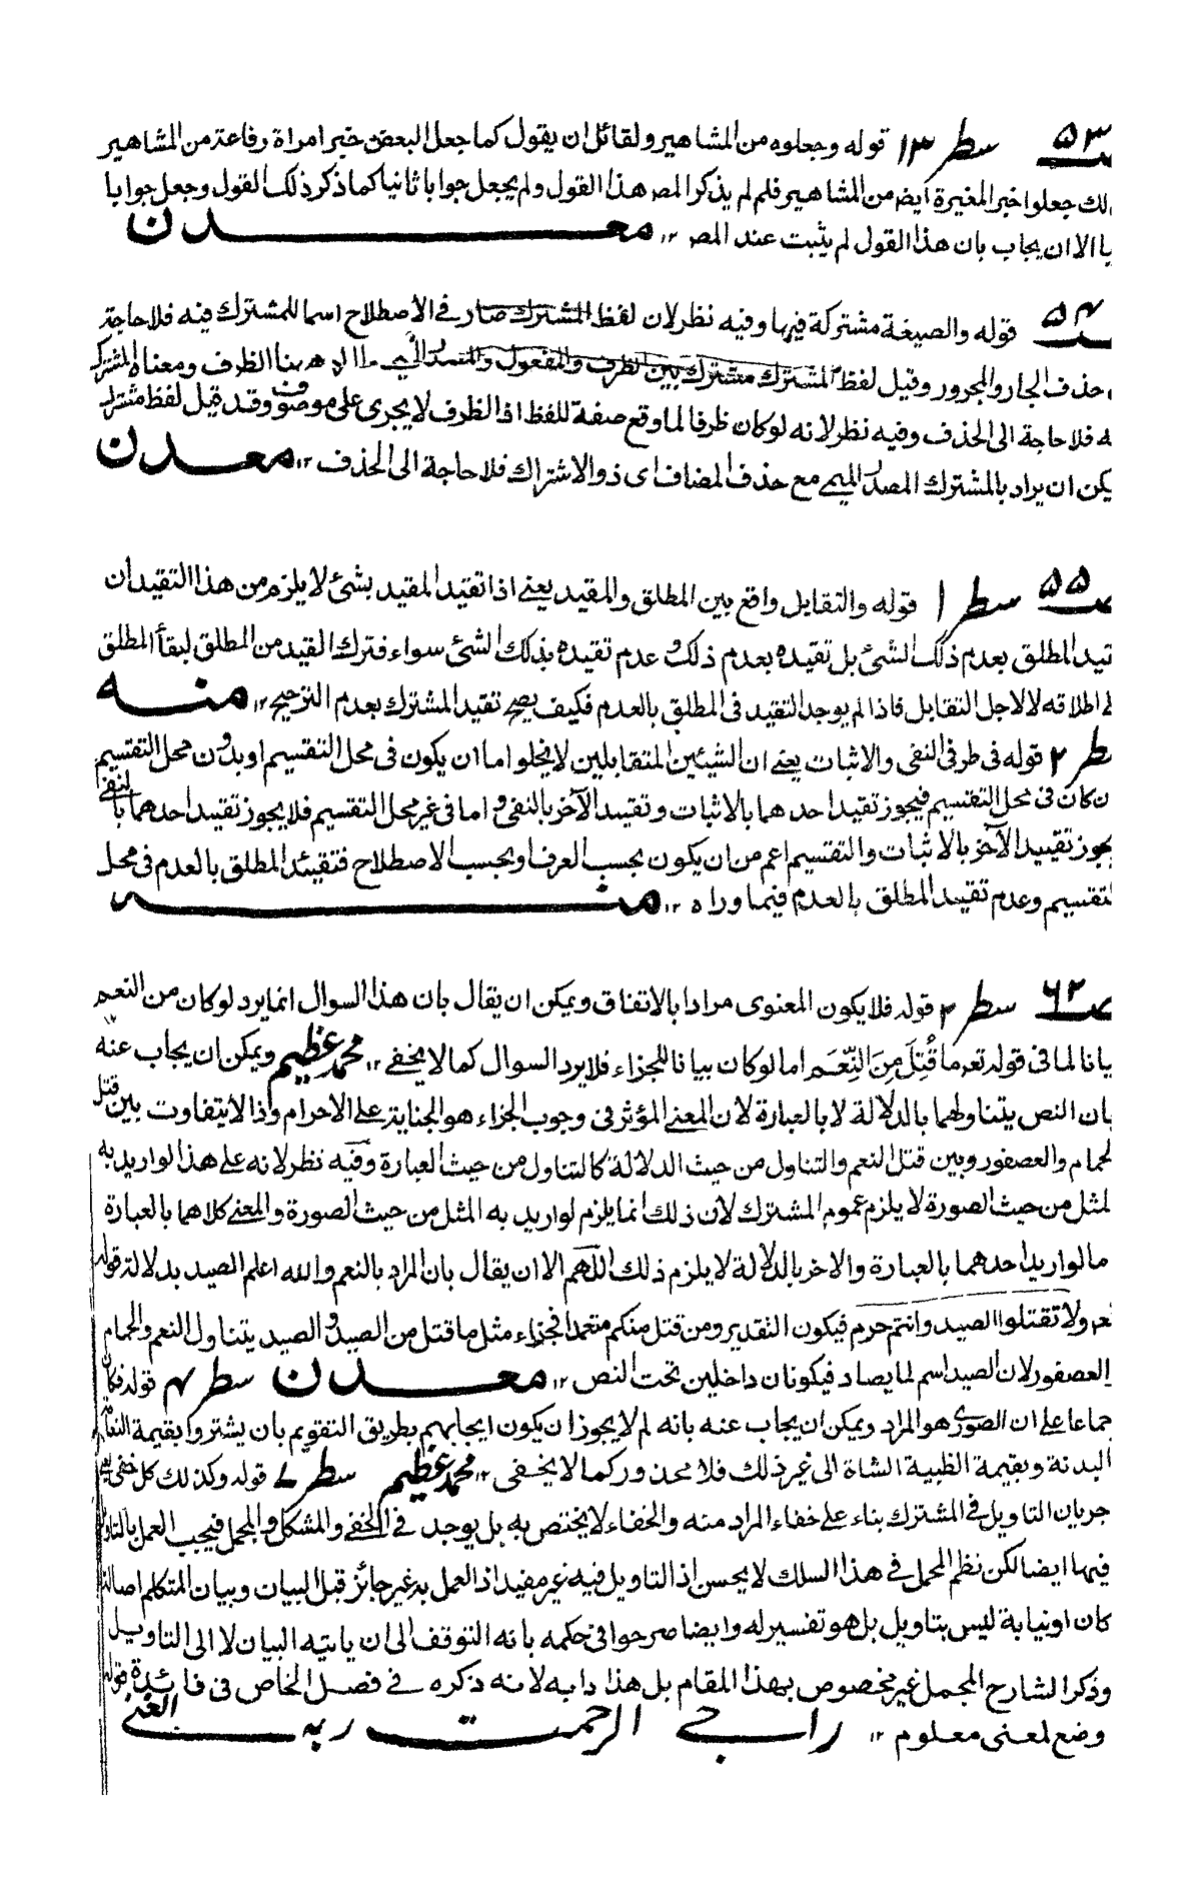 ۵۳ سطر ۱۳ قوله وجعلوه من المشاهير ولقائل ان يقول كما جعل البعض خبر امراة رفاعة من المشاهير
لك جعلوا خبر المغيرة ايضا من المشاهير فلم لم يذكر المص هذا القول ولم يجعل جوابا ثانيا كما ذكر ذلك القول وجعل جوابا
يا الا ان يجاب بان هذا القول لم يثبت عند المص ۱۲ معدن
۵۴ قوله والصيغة مشتركة فيها وفيه نظر لان لفظ المشترك صار في الاصطلاح اسما للمشترك فيه فلا حاجة
حذف الجار والمجرور وقيل لفظ المشترك مشترك بين الظرف والمفعول والمصدر الميمي والمراد ههنا الظرف ومعناه المشترك
ه فلا حاجة الى الحذف وفيه نظر لانه لو كان ظرفا لما وقع صفة للفظ اذ الظرف لا يجرى على موصوف وقد قيل لفظ مشترك
يكن ان يراد بالمشترك المصدر الميمي مع حذف المضاف اى ذو الاشتراك فلا حاجة الى الحذف ۱۲ معدن
۵۵ سطر ۱ قوله والتقابل واقع بين المطلق والمقيد يعنے اذا تقيد المقيد بشئ لا يلزم من هذا التقيد ان
تيد المطلق بعدم ذلك الشئ بل تقيده بعدم ذلك و عدم تقيده بذلك الشئ سواء فترك القيد من المطلق لبقأ المطلق
لے اطلاقه لا لاجل التقابل فاذا لم يوجد التقيد فى المطلق بالعدم فكيف يصح تقيد المشترك بعدم الترجيح ۱۲ منه
طر ۲ قوله فى طرفى النفى والاثبات يعنے ان الشيئين المتقابلين لا يخلوا ما ان يكون فى محل التقسيم او بدون محل التقسيم
ن كان فى محل التقسيم فيجوز تقيد احدهما بالاثبات وتقيد الآخر بالنفى و اما فى غير محل التقسيم فلا يجوز تقيد احدهما بالنفى
يجوز تقييد الآخر بالاثبات والتقسيم اعم من ان يكون بحسب العرف او بحسب الاصطلاح فتقيد المطلق بالعدم فى محل
لتقسيم وعدم تقيد المطلق بالعدم فيما وراه ۱۲ منه
۶۲ سطر ۲ قوله فلا يكون المعنوى مرادا بالاتفاق ويمكن ان يقال بان هذا السوال انما يرد لو كان من النعم
يانا لما فى قوله تعه ما قُتِلَ مِنَ النِّعَم اما لو كان بيانا للجزاء فلا يرد السوال كما لا يخفے ۱۲ محمد عظيم ويمكن ان يجاب عنه
بان النص يتناولهما بالدلالة لا بالعبارة لان المعنے المؤثر فى وجوب الجزاء هو الجناية علے الاحرام وذا لا يتفاوت بين قتل
لحمام والعصفور وبين قتل النعم والتناول من حيث الدلالة كالتناول من حيث العبارة وفيه نظر لانه علے هذا لو اريد به
لمثل من حيث الصورة لا يلزم عموم المشترك لان ذلك انما يلزم لو اريد به المثل من حيث الصورة والمعنے كلاهما بالعبارة
ما لو اريد احدهما بالعبارة والاخر بالدلالة لا يلزم ذلك اللهم الا ان يقال بان المراد بالنعم والله اعلم الصيد بدلالة قوله
تعه ولا تقتلوا الصيد وانتم حرم فيكون التقدير ومن قتل منكم متعمدا فجزاء مثل ما قتل من الصيد و الصيد يتناول النعم والحمام
العصفور لان الصيد اسم لما يصاد فيكونان داخلين تحت النص ۱۲ معدن سطر ۴ قوله فكان
جماعا علے ان الصورى هو المراد ويمكن ان يجاب عنه بانه لم لا يجوز ان يكون ايجابهم بطريق التقويم بان يشتروا بقيمة النعامة
البدنة وبقيمة الظبية الشاة الى غير ذلك فلا محذور كما لا يخفى ۱۲ محمد عظيم سطر ے قوله وكذلك كل خفى
جريان التاويل في المشترك بناء علے خفاء المراد منه والخفاء لا يختص به بل يوجد في الخفے والمشكل والمجمل فيجب العمل بالتاويل
فيها ايضا لكن نظم المجمل فے هذا السلك لا يحسن اذ التاويل فيه غير مفيد اذ العمل به غير جائز قبل البيان وبيان المتكلم اصالة
كان او نيابة ليس بتاويل بل هو تفسير له وايضا صرحوا فى حكمه بانه التوقف الى ان ياتيه البيان لا الى التاويل
وذكر الشارح المجمل غير مخصوص بهذا المقام بل هذا دابه لانه ذكره فے فصل الخاص فى فائدة قوله
وضع لمعنى معلوم ۱۲ راجے الرحمت ربه الغنے